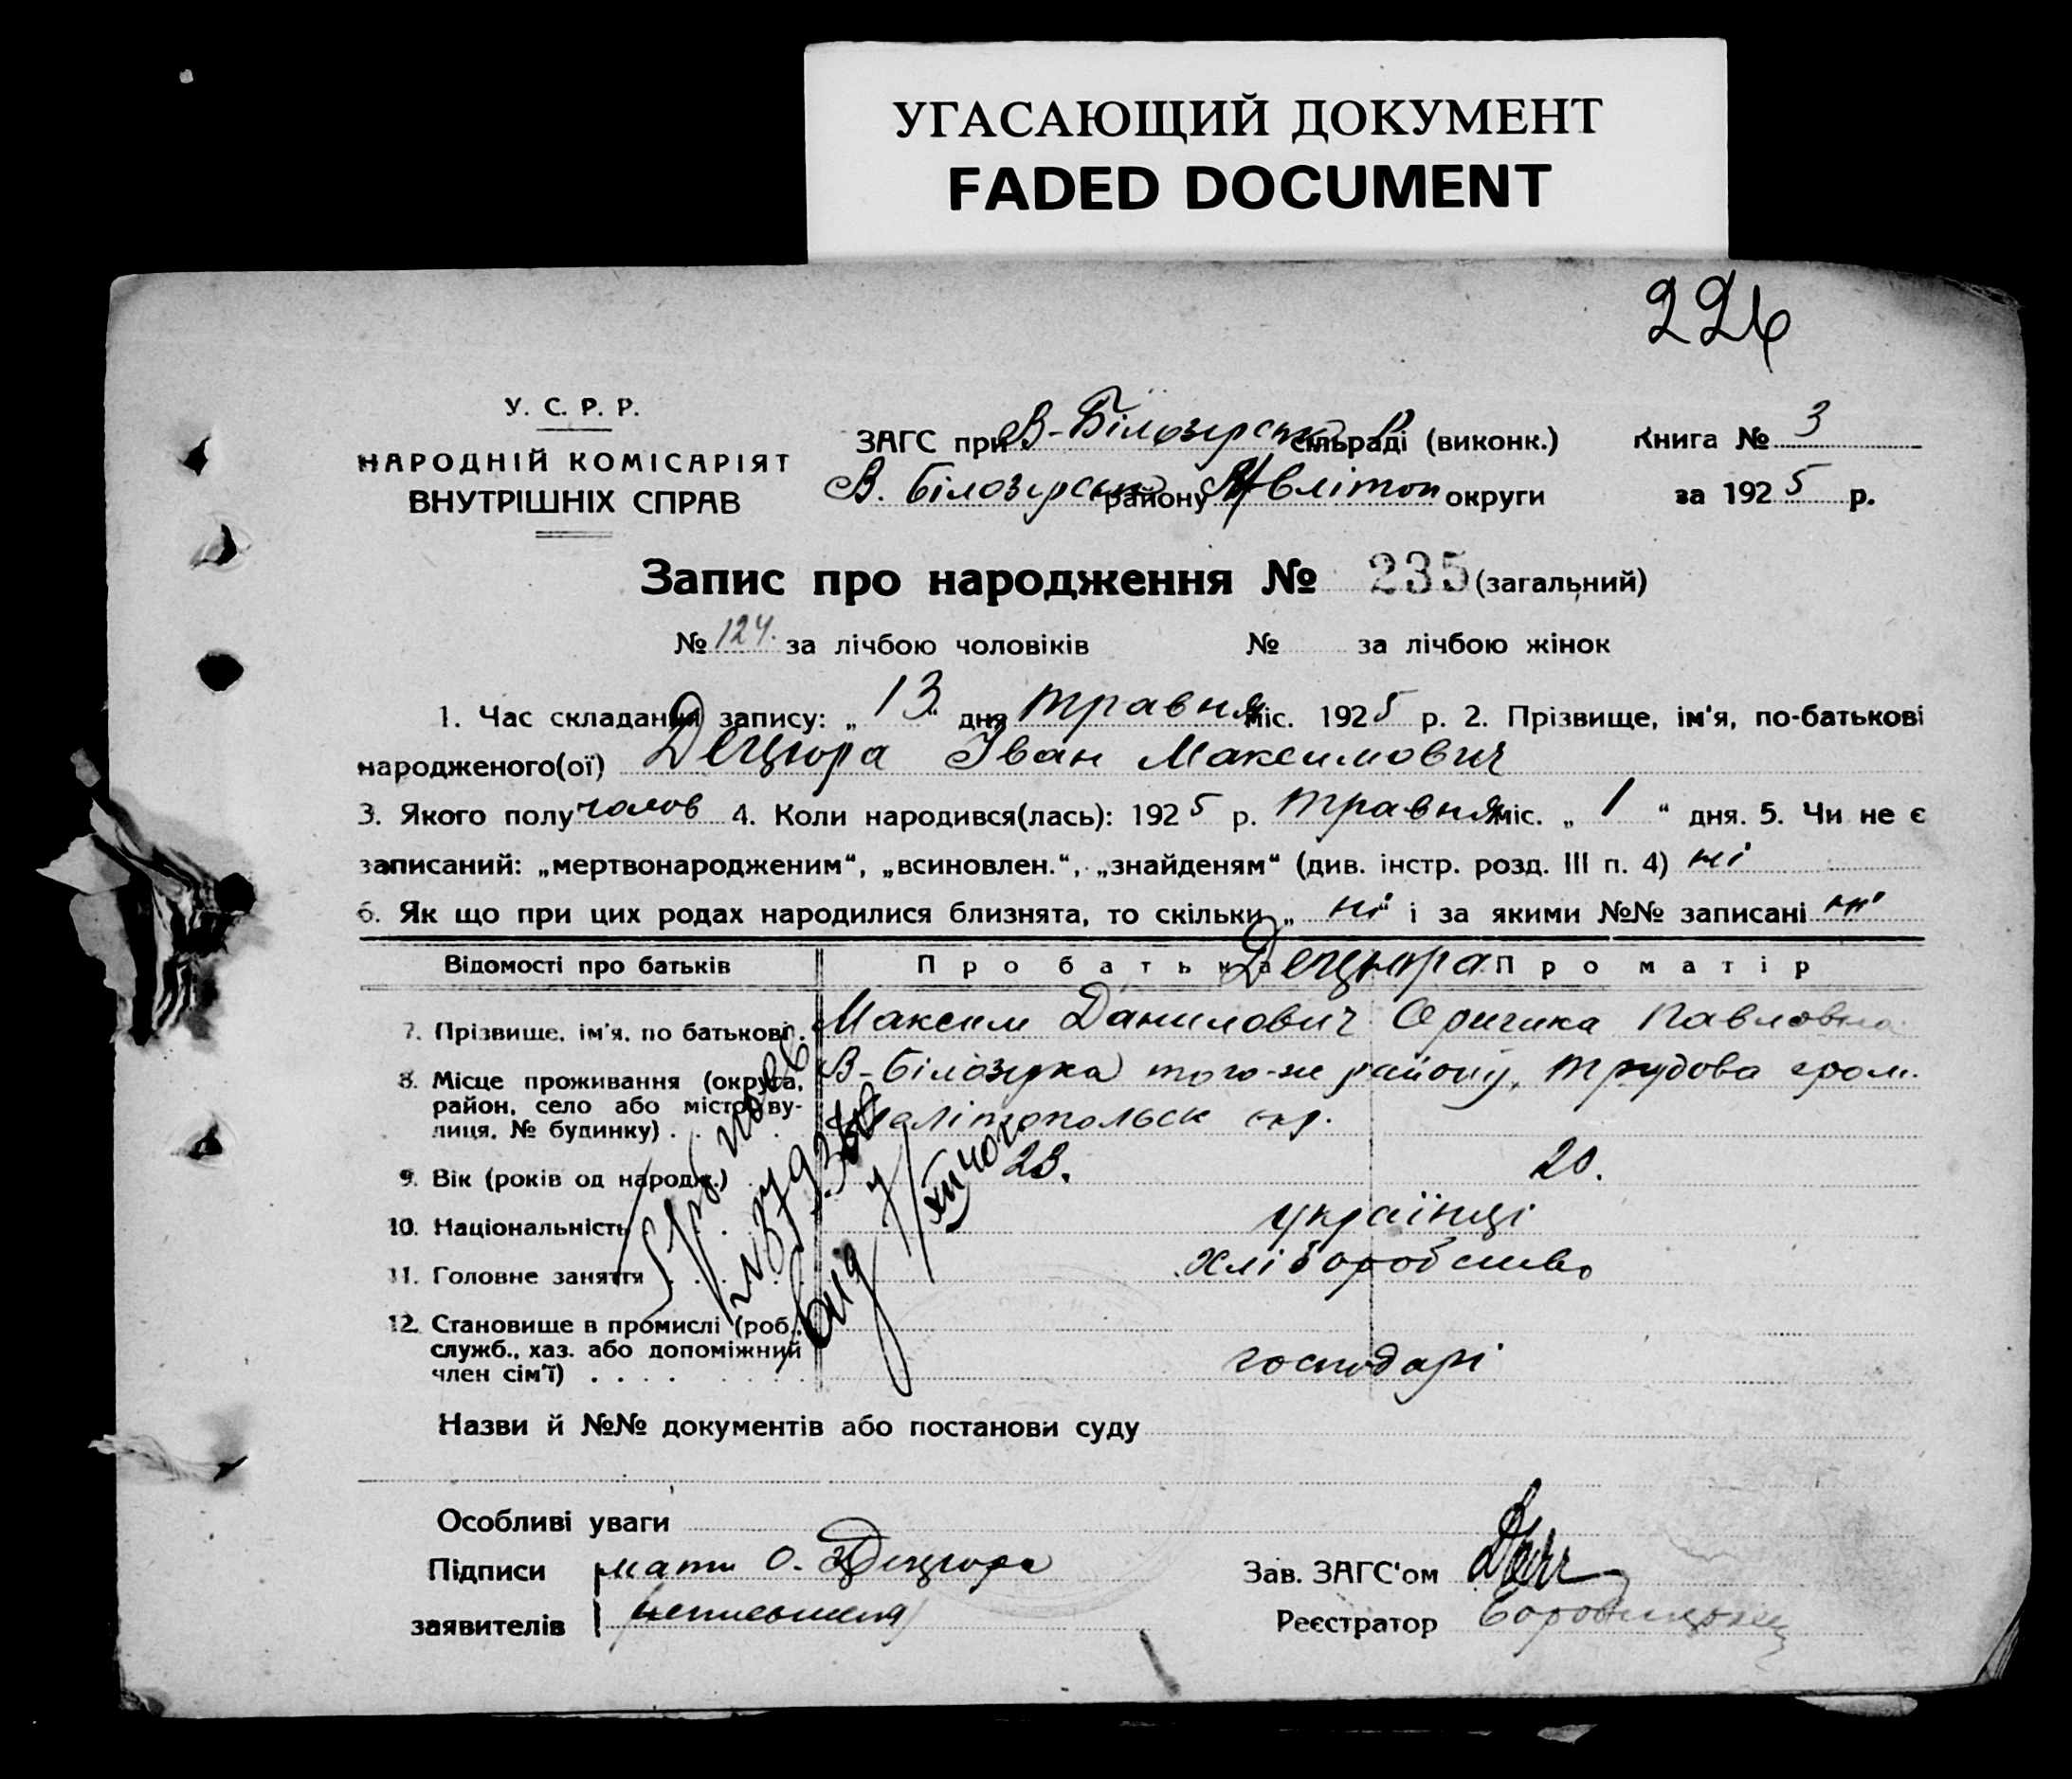 УГАСАЮЩИЙ ДОКУМЕНТ
FADED DOCUMENT
226
У. С. Р. Р.
НАРОДНІЙ КОМІСАРІЯТ
ВНУТРІШНІХ СПРАВ
ЗАГС при В-Білозерськ сільраді (виконк.) Книга № 3
В. Білозерськ району Мвлітоп округи за 1925 р.
Запис про народження № 235 (загальний)
№ 124. за лічбою чоловіків № за лічбою жінок
1. Час складання запису: „13“ дня травня міс. 1925 р. 2. Прізвище, ім'я, по-батькові
народженого(ої) Децюра Іван Максимович
3. Якого полу чолов 4. Коли народився(лась): 1925 р. травня міс. „1“ дня. 5. Чи не є
записаний: „мертвонародженим“, „всиновлен.“, „знайденям“ (див. інстр. розд. III п. 4) ні
6. Як що при цих родах народилися близнята, то скільки „ні“ і за якими №№ записані ні
Відомості про батьків Про батька Децюра Про матір
7. Прізвище, ім'я, по батькові. Максим Данилович Оришка Павловна
8. Місце проживання (округа, В-Білозерка того-же району, трудова гром.
район, село або місто, ву-
лиця, № будинку) . . Меліто​польськ окр.
9. Вік (років од народж.) 23. 20.
10. Національність українці
11. Головне заняття хліборобство
12. Становище в промислі (роб.,
служб., хаз. або допоміжний
член сім'ї) . . . . господарі
від
Назви й №№ документів або постанови суду
Особливі уваги
Підписи мати О. Децюра Зав. ЗАГС'ом
заявителів неписьмена Реєстратор